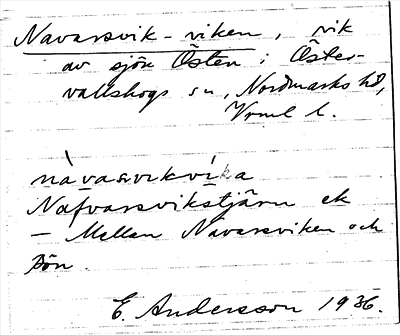 Navarsvik-viken, vik
av sjön Östen i Öster-
vallskogs sn, Nordmarks hd,
Vrml l.
nàvasvikvíka
Nafvarsvikstjärn ek
— Mellan Navarsviken och
sjön.
E. Andersson 1936.